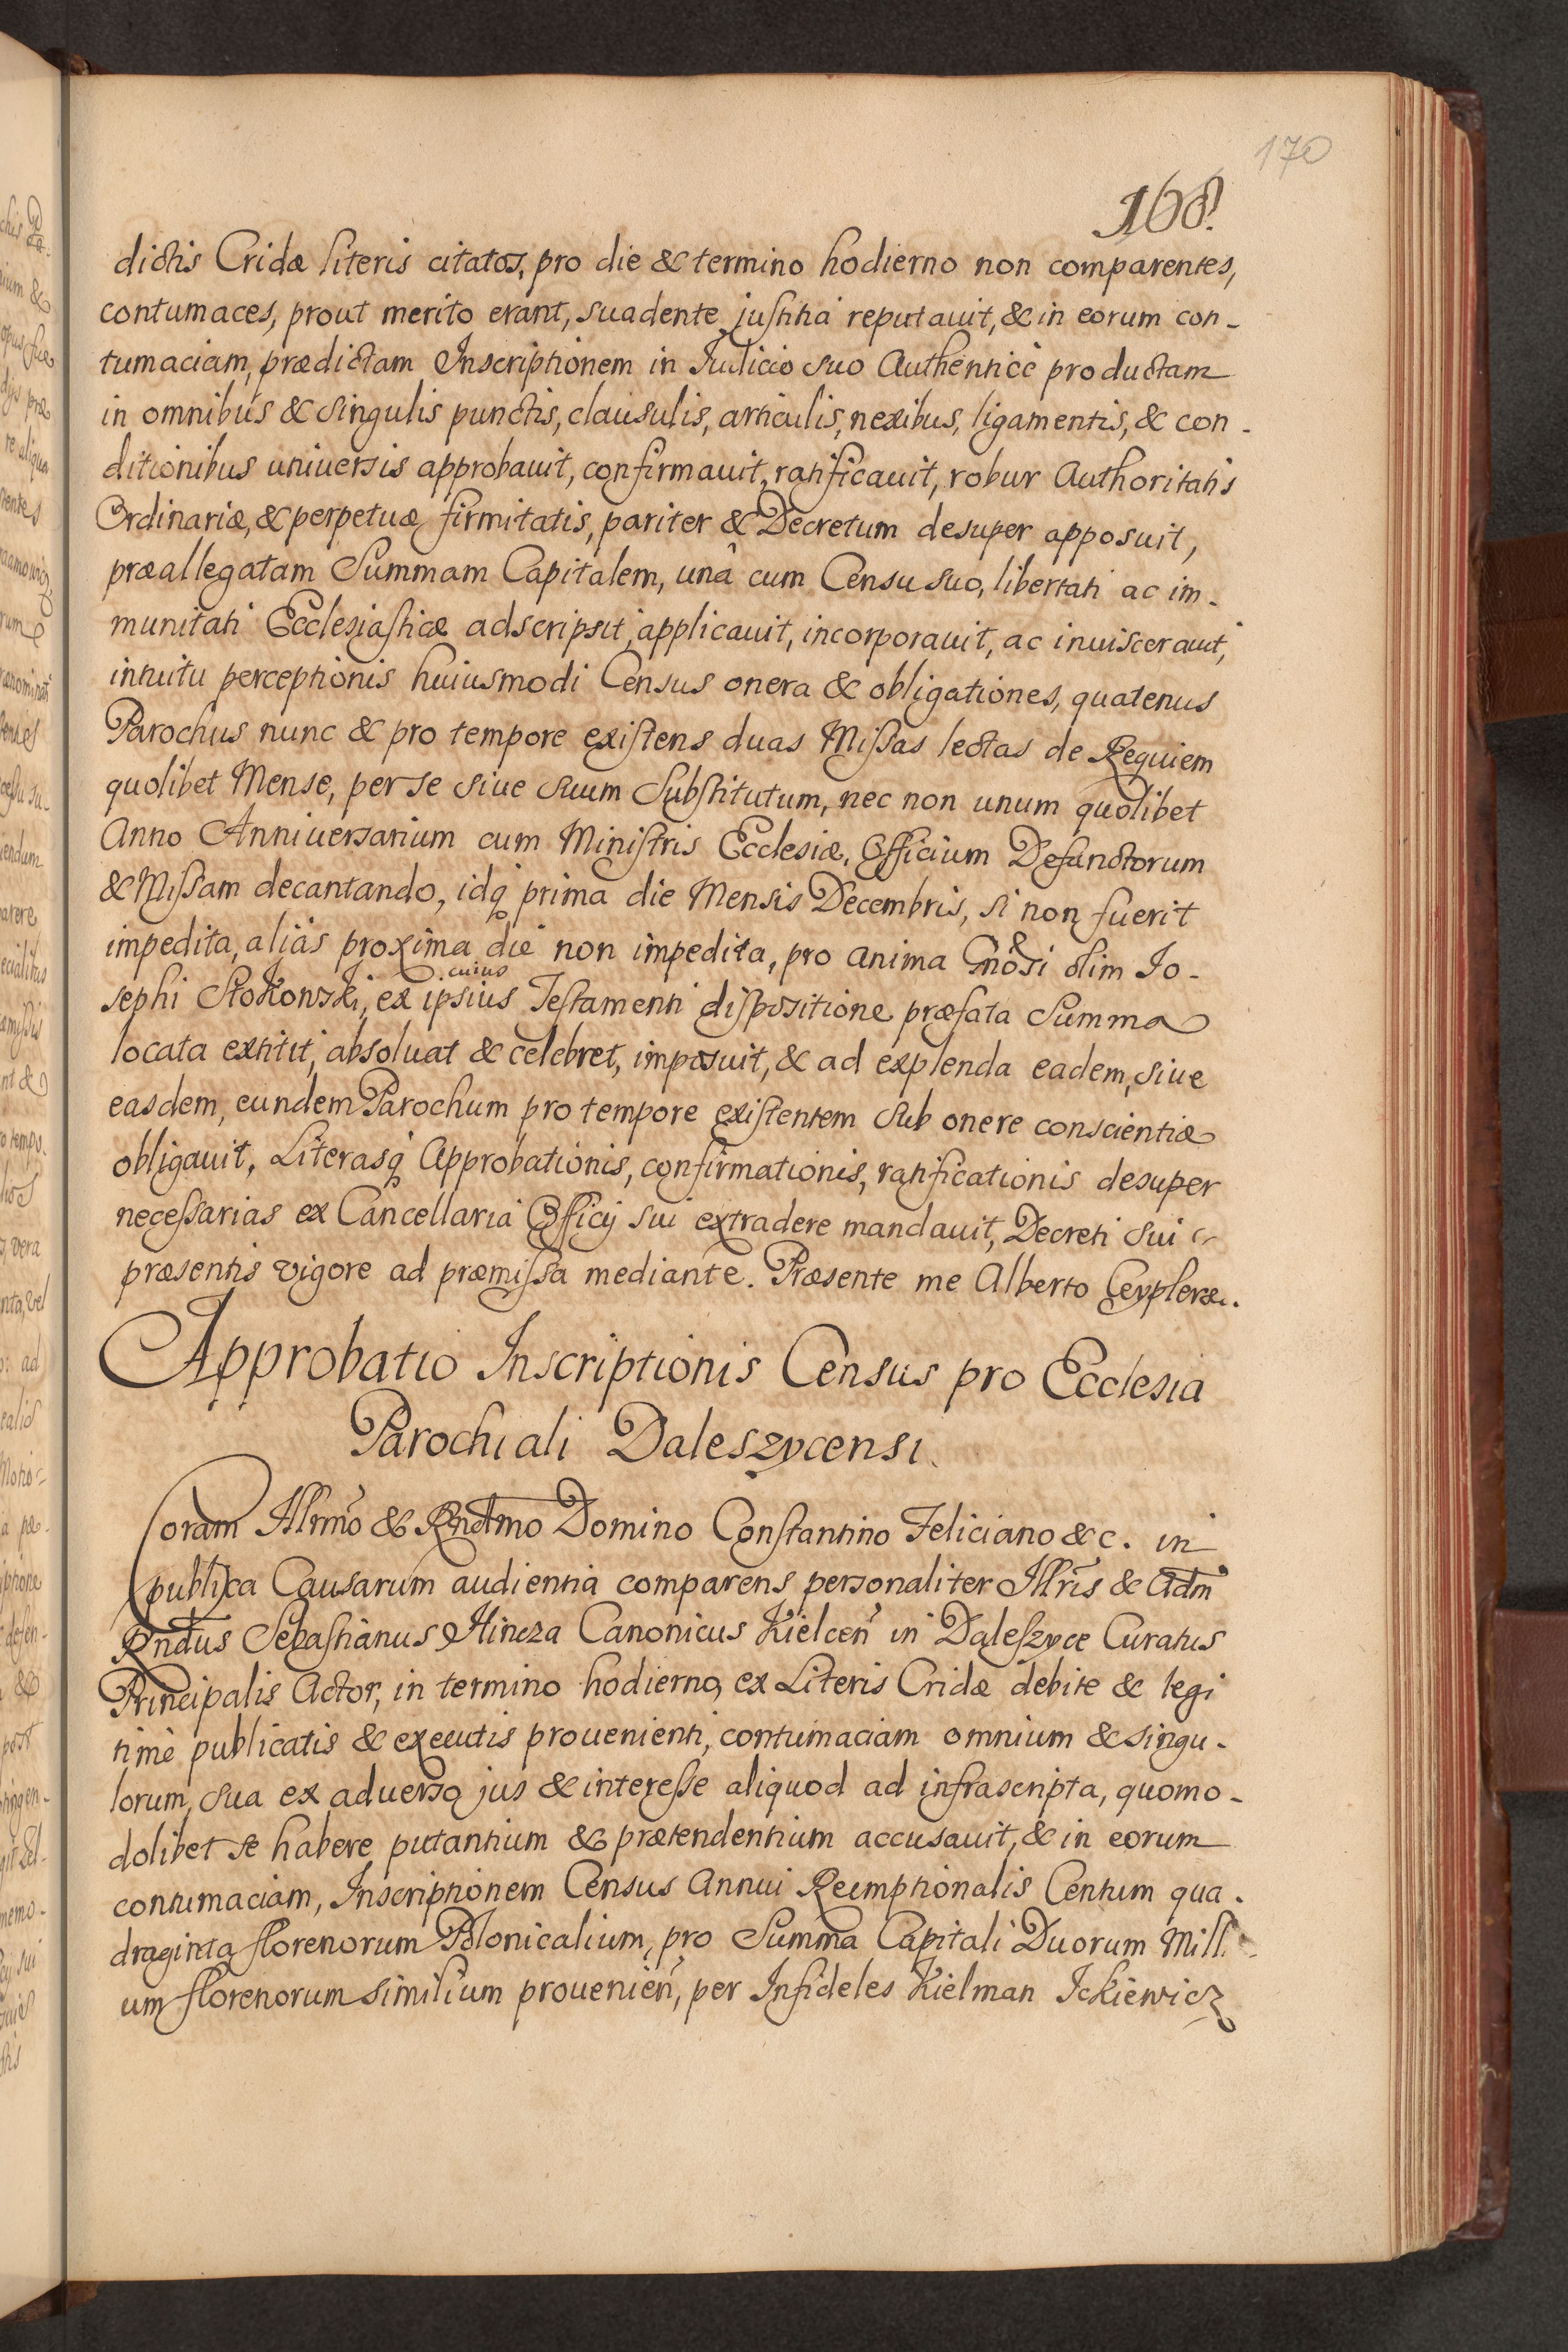 170
168.
dictis Cridæ literis citatos, pro die & termino hodierno non comparentes,
contumaces, prout merito erant, suadente justitiâ reputauit, & in eorum con-
tumaciam, prædictam Inscriptionem in Iudicio suo Authenticè productam
in omnibus & singulis punctis, clausulis, articulis, nexibus, ligamentis, & con-
ditionibus uniuersis approbauit, confirmauit, ratificauit, robur Authoritatis
Ordinariæ, & perpetuæ firmitatis, pariter & Decretum desuper apposuit,
præallegatam Summam Capitalem, unâ cum Censu suo, libertati ac im-
munitati Ecclesiasticæ adscripsit, applicauit, incorporauit, ac inuiscerauit,
intuitu perceptionis huiusmodi Census onera & obligationes, quatenus
Parochus nunc & pro tempore existens duas Missas lectas de Requiem
quolibet Mense, per se siue suum Substitutum, nec non unum quolibet
Anno Anniuersarium cum Ministris Ecclesiæ, Officium Defunctorum
& Missam decantando, idq prima die Mensis Decembris, si non fuerit
impedita, aliàs proxima die non impedita, pro anima Gnosi olim Io-
sephi Stokowski, ex cuius ipsius Testamenti dispositione præfata Summa
locata extitit, absoluat & celebret, imposuit, & ad explenda eadem, siue
easdem, eundem Parochum pro tempore existentem sub onere conscientiæ
obligauit, Literasq Approbationis, confirmationis, ratificationis desuper
necessarias ex Cancellaria Officij sui extradere mandauit, Decreti sui
præsentis vigore ad præmissa mediante. Præsente me Alberto Ceypler &c.
Approbatio Inscriptionis Census pro Ecclesia
Parochiali Daleszycensi.
Coram Illrmo & Rndmo Domino Constantino Feliciano &c. in
publica Causarum audientia comparens personaliter Illris & Adm
Rndus Sebastianus Hincza Canonicus Kielcen in Daleszyce Curatus
Principalis Actor, in termino hodierno, ex Literis Cridæ debite & legi
timè publicatis & executis prouenienti, contumaciam omnium & singu-
lorum, sua ex aduerso jus & interesse aliquod ad infrascripta, quomo-
dolibet se habere putantium & prætendentium accusauit, & in eorum
contumaciam, Inscriptionem Census Annui Reemptionalis Centum qua-
draginta florenorum Polonicalium, pro Summa Capitali Duorum Milli
um florenorum similium prouenien, per Infideles Kielman Ickiewicz